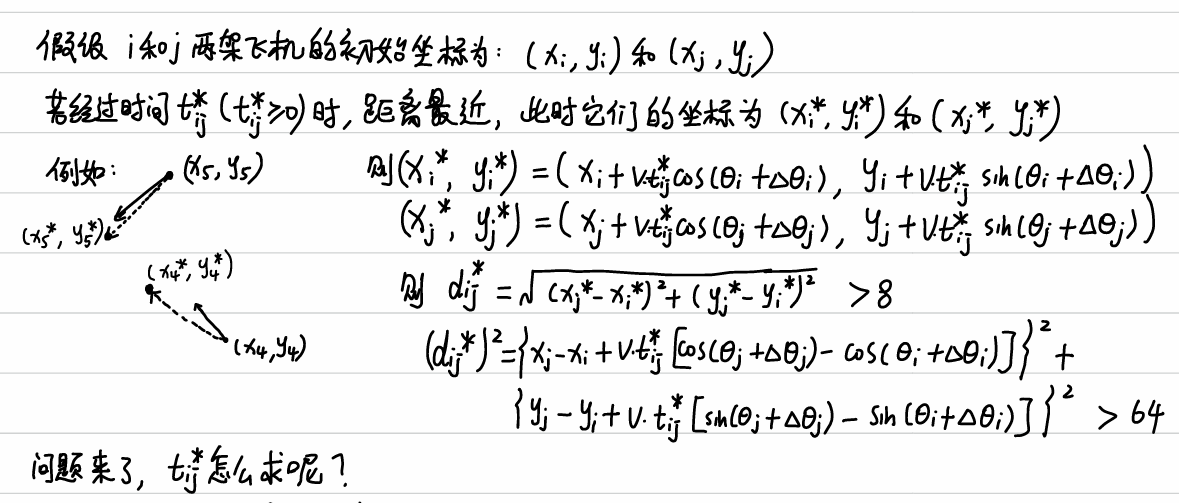 假设 i和j 两架飞机的初始坐标为: (xᵢ, yᵢ) 和 (xⱼ, yⱼ)
若经过时间 tᵢⱼ* (tᵢⱼ*≥0) 时, 距离最近, 此时它们的坐标为 (xᵢ*, yᵢ*) 和 (xⱼ*, yⱼ*)
例如:
(x₅, y₅)
(x₅*, y₅*)
(x₄*, y₄*)
(x₄, y₄)
则(xᵢ*, yᵢ*) = (xᵢ + v·tᵢⱼ* cos(θᵢ + Δθᵢ), yᵢ + v·tᵢⱼ* sin(θᵢ + Δθᵢ))
(xⱼ*, yⱼ*) = (xⱼ + v·tᵢⱼ* cos(θⱼ + Δθⱼ), yⱼ + v·tᵢⱼ* sin(θⱼ + Δθⱼ))
则 dᵢⱼ* = √((xⱼ* - xᵢ*)² + (yⱼ* - yᵢ*)²) > 8
(dᵢⱼ*)² = {xⱼ - xᵢ + v·tᵢⱼ* [cos(θⱼ + Δθⱼ) - cos(θᵢ + Δθᵢ)]}² +
{yⱼ - yᵢ + v·tᵢⱼ* [sin(θⱼ + Δθⱼ) - sin(θᵢ + Δθᵢ)]}² > 64
问题来了, tᵢⱼ* 怎么求呢?